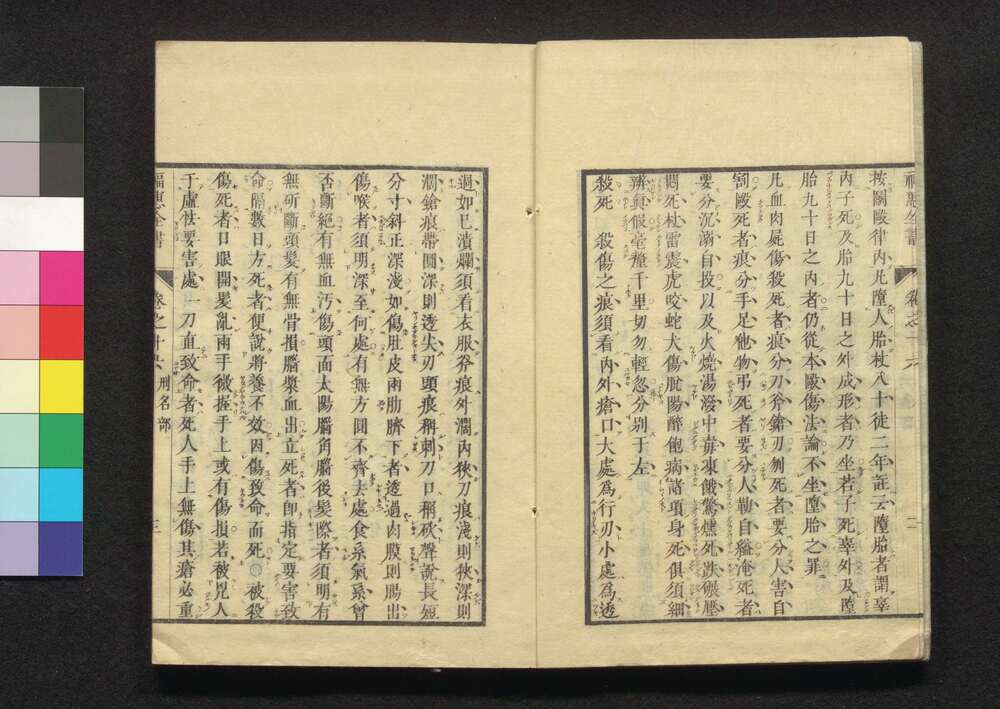 福惠全書 卷之十六 二
按鬭毆律內凡墮人胎杖八十徒二年註云墮胎者謂辜
內子死及胎九十日之外成形者乃坐若子死辜外及墮
胎九十日之內者仍從本毆傷法論不坐墮胎之罪
凡血肉屍傷殺死者痕分刀斧鎗刃刎死者要分人害自
割毆死者痕分手足他物弔死者要分人勒自縊淹死者
要分沉溺自投以及火燒湯潑中毒凍餓驚懗死跌碾壓
悶死杖雷震虎咬蛇犬傷脫陽醉飽病諸項身死俱須細
辨與假毫釐千里切勿輕忽分別于左
殺死 殺傷之痕須看內外瘡口大處爲行刃小處爲透
過如已潰爛須看衣服斧痕外濶內狹刀痕淺則狹深則
濶鎗痕帶圓深則透尖刃頭痕稱刺刀口稱砍聲說長短
分寸斜正深淺如傷肚皮兩肋臍下者透過肉膜則腸出
傷喉者須明深至何處有無方圓不齊去處食系氣系曾
否斷絕有無血汚傷頭面太陽腦角腦後髮際者須明有
無斫斷頭髮有無骨損腦漿血出立死者卽指定要害致
命隔數日方死者便說將養不效因傷致命而死○被殺
傷死者口眼開髮亂兩手微握手上或有傷損若被兇人
于虛怯要害處一刀直致命者死人手上無傷其瘡必重
福惠全書 卷之十六 刑名部 三